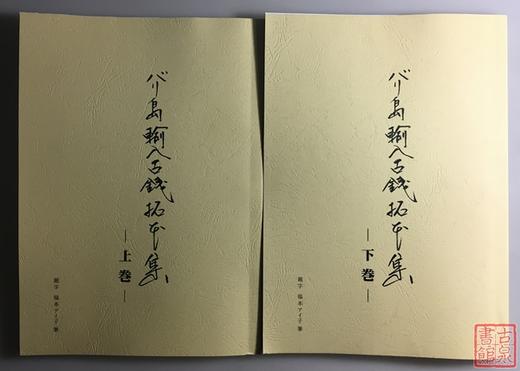 バリ島輸入古銭拓本集
―上巻―
題字 福本アイ子筆
バリ島輸入古銭拓本集
―下巻―
題字 福本アイ子筆
古泉
書館